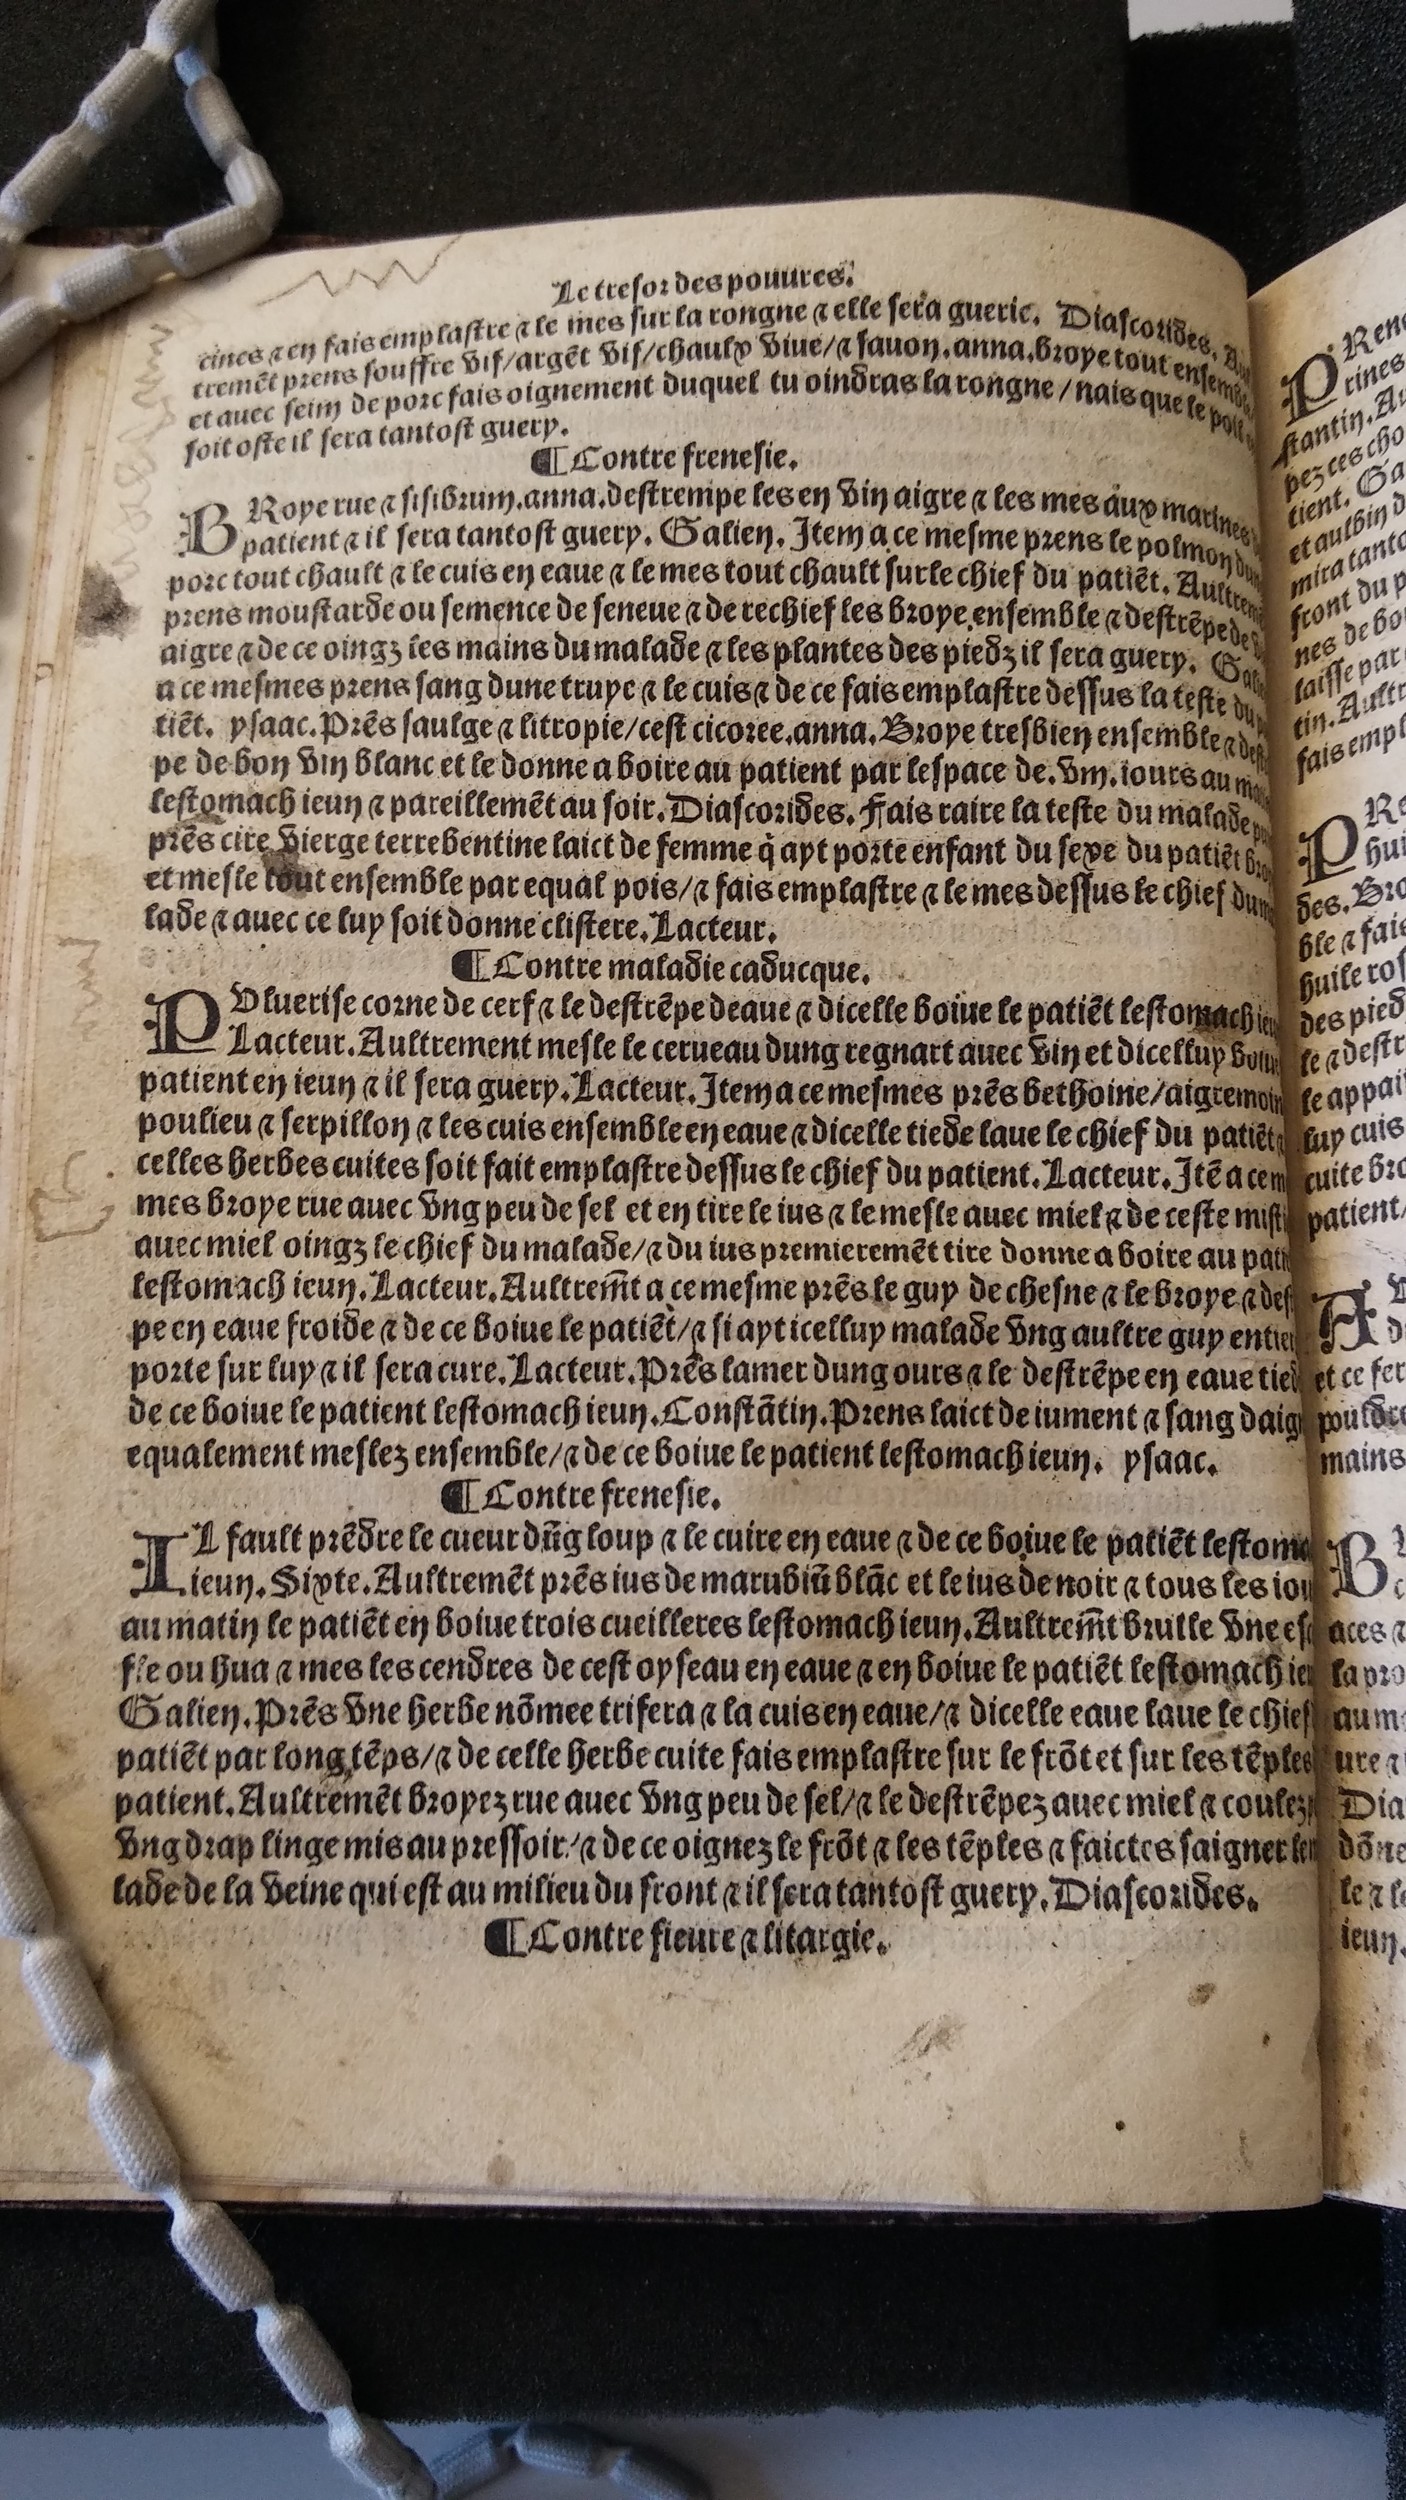 Le tresor des pouures.
cines ⁊ en fais emplastre ⁊ le mes sur la rongne ⁊ elle sera guerie. Diascorides.
tremẽt prens souffre vif/argẽt vif/chaulx viue/⁊ sauon.anna.broye tout
et auec seim de porc fais oignement duquel tu oindras la rongne/nais que le
soit oste il sera tantost guery.
¶Contre frenesie.
BRoye rue ⁊ sisibrum.anna.destrempe les en vin aigre ⁊ les mes aux marines
patient ⁊ il sera tantost guery. Galien. Item a ce mesme prens le polmon
porc tout chault ⁊ le cuis en eaue ⁊ le mes tout chault sur le chief du patiẽt.
prens moustarde ou semence de seneue ⁊ de rechief les broye ensemble ⁊ destrẽpe de
aigre ⁊ de ce oingz les mains du malade ⁊ les plantes des piedz il sera guery.
a ce mesmes prens sang dune truye ⁊ le cuis ⁊ de ce fais emplastre dessus la teste
tiẽt. ysaac.Prẽs saulge ⁊ litropie/cest cicoree.anna.Broye tresbien ensemble ⁊
pe de bon vin blanc et le donne a boire au patient par lespace de.viij.iours au
lestomach ieun ⁊ pareillemẽt au soir.Diascorides. Fais raire la teste du malade
prẽs cire vierge terrebentine laict de femme q̃ ayt porte enfant du sexe du patiẽt
et mesle tout ensemble par equal pois/⁊ fais emplastre ⁊ le mes dessus le chief
lade ⁊ auec ce luy soit donne clistere.Lacteur.
¶Contre maladie caducque.
PVluerise corne de cerf ⁊ le destrẽpe deaue ⁊ dicelle boiue le patiẽt lestomach
Lacteur.Aultrement mesle le cerueau dung regnart auec vin et dicelluy
patient en ieun ⁊ il sera guery.Lacteur.Item a ce mesmes prẽs bethoine/aigremoin
poulieu ⁊ serpillon ⁊ les cuis ensemble en eaue ⁊ dicelle tiede laue le chief du patiẽt
celles herbes cuites soit fait emplastre dessus le chief du patient.Lacteur.Itẽ a ce
mes broye rue auec vng peu de sel et en tire le ius ⁊ le mesle auec miel ⁊ de ceste
auec miel oingz le chief du malade/⁊ du ius premieremẽt tire donne a boire au
lestomach ieun.Lacteur.Aultrem̃t a ce mesme prẽs le guy de chesne ⁊ le broye ⁊
pe en eaue froide ⁊ de ce boiue le patiẽt/⁊ si ayt icelluy malade vng aultre guy
porte sur luy ⁊ il sera cure.Lacteur.Prẽs lamer dung ours ⁊ le destrẽpe en eaue
de ce boiue le patient lestomach ieun.Constãtin.Prens laict de iument ⁊ sang
equalement meslez ensemble/⁊ de ce boiue le patient lestomach ieun. ysaac.
¶Contre frenesie.
IL fault prẽdre le cueur dũg loup ⁊ le cuire en eaue ⁊ de ce boiue le patiẽt
ieun.Sixte.Aultremẽt prẽs ius de marubiũ blãc et le ius de noir ⁊ tous les
au matin le patiẽt en boiue trois cueilleres lestomach ieun.Aultrem̃t brulle vne
fle ou hua ⁊ mes les cendres de cest oyseau en eaue ⁊ en boiue le patiẽt lestomach
Galien.Prẽs vne herbe nõmee trifera ⁊ la cuis en eaue/⁊ dicelle eaue laue le chief
patiẽt par long tẽps/⁊ de celle herbe cuite fais emplastre sur le frõt et sur les tẽples
patient.Aultremẽt broyez rue auec vng peu de sel/⁊ le destrẽpez auec miel ⁊ coulez
vng drap linge mis au pressoir/⁊ de ce oignez le frõt ⁊ les tẽples ⁊ faictes saigner
lade de la veine qui est au milieu du front ⁊ il sera tantost guery.Diascorides.
¶Contre fieure ⁊ litargie.